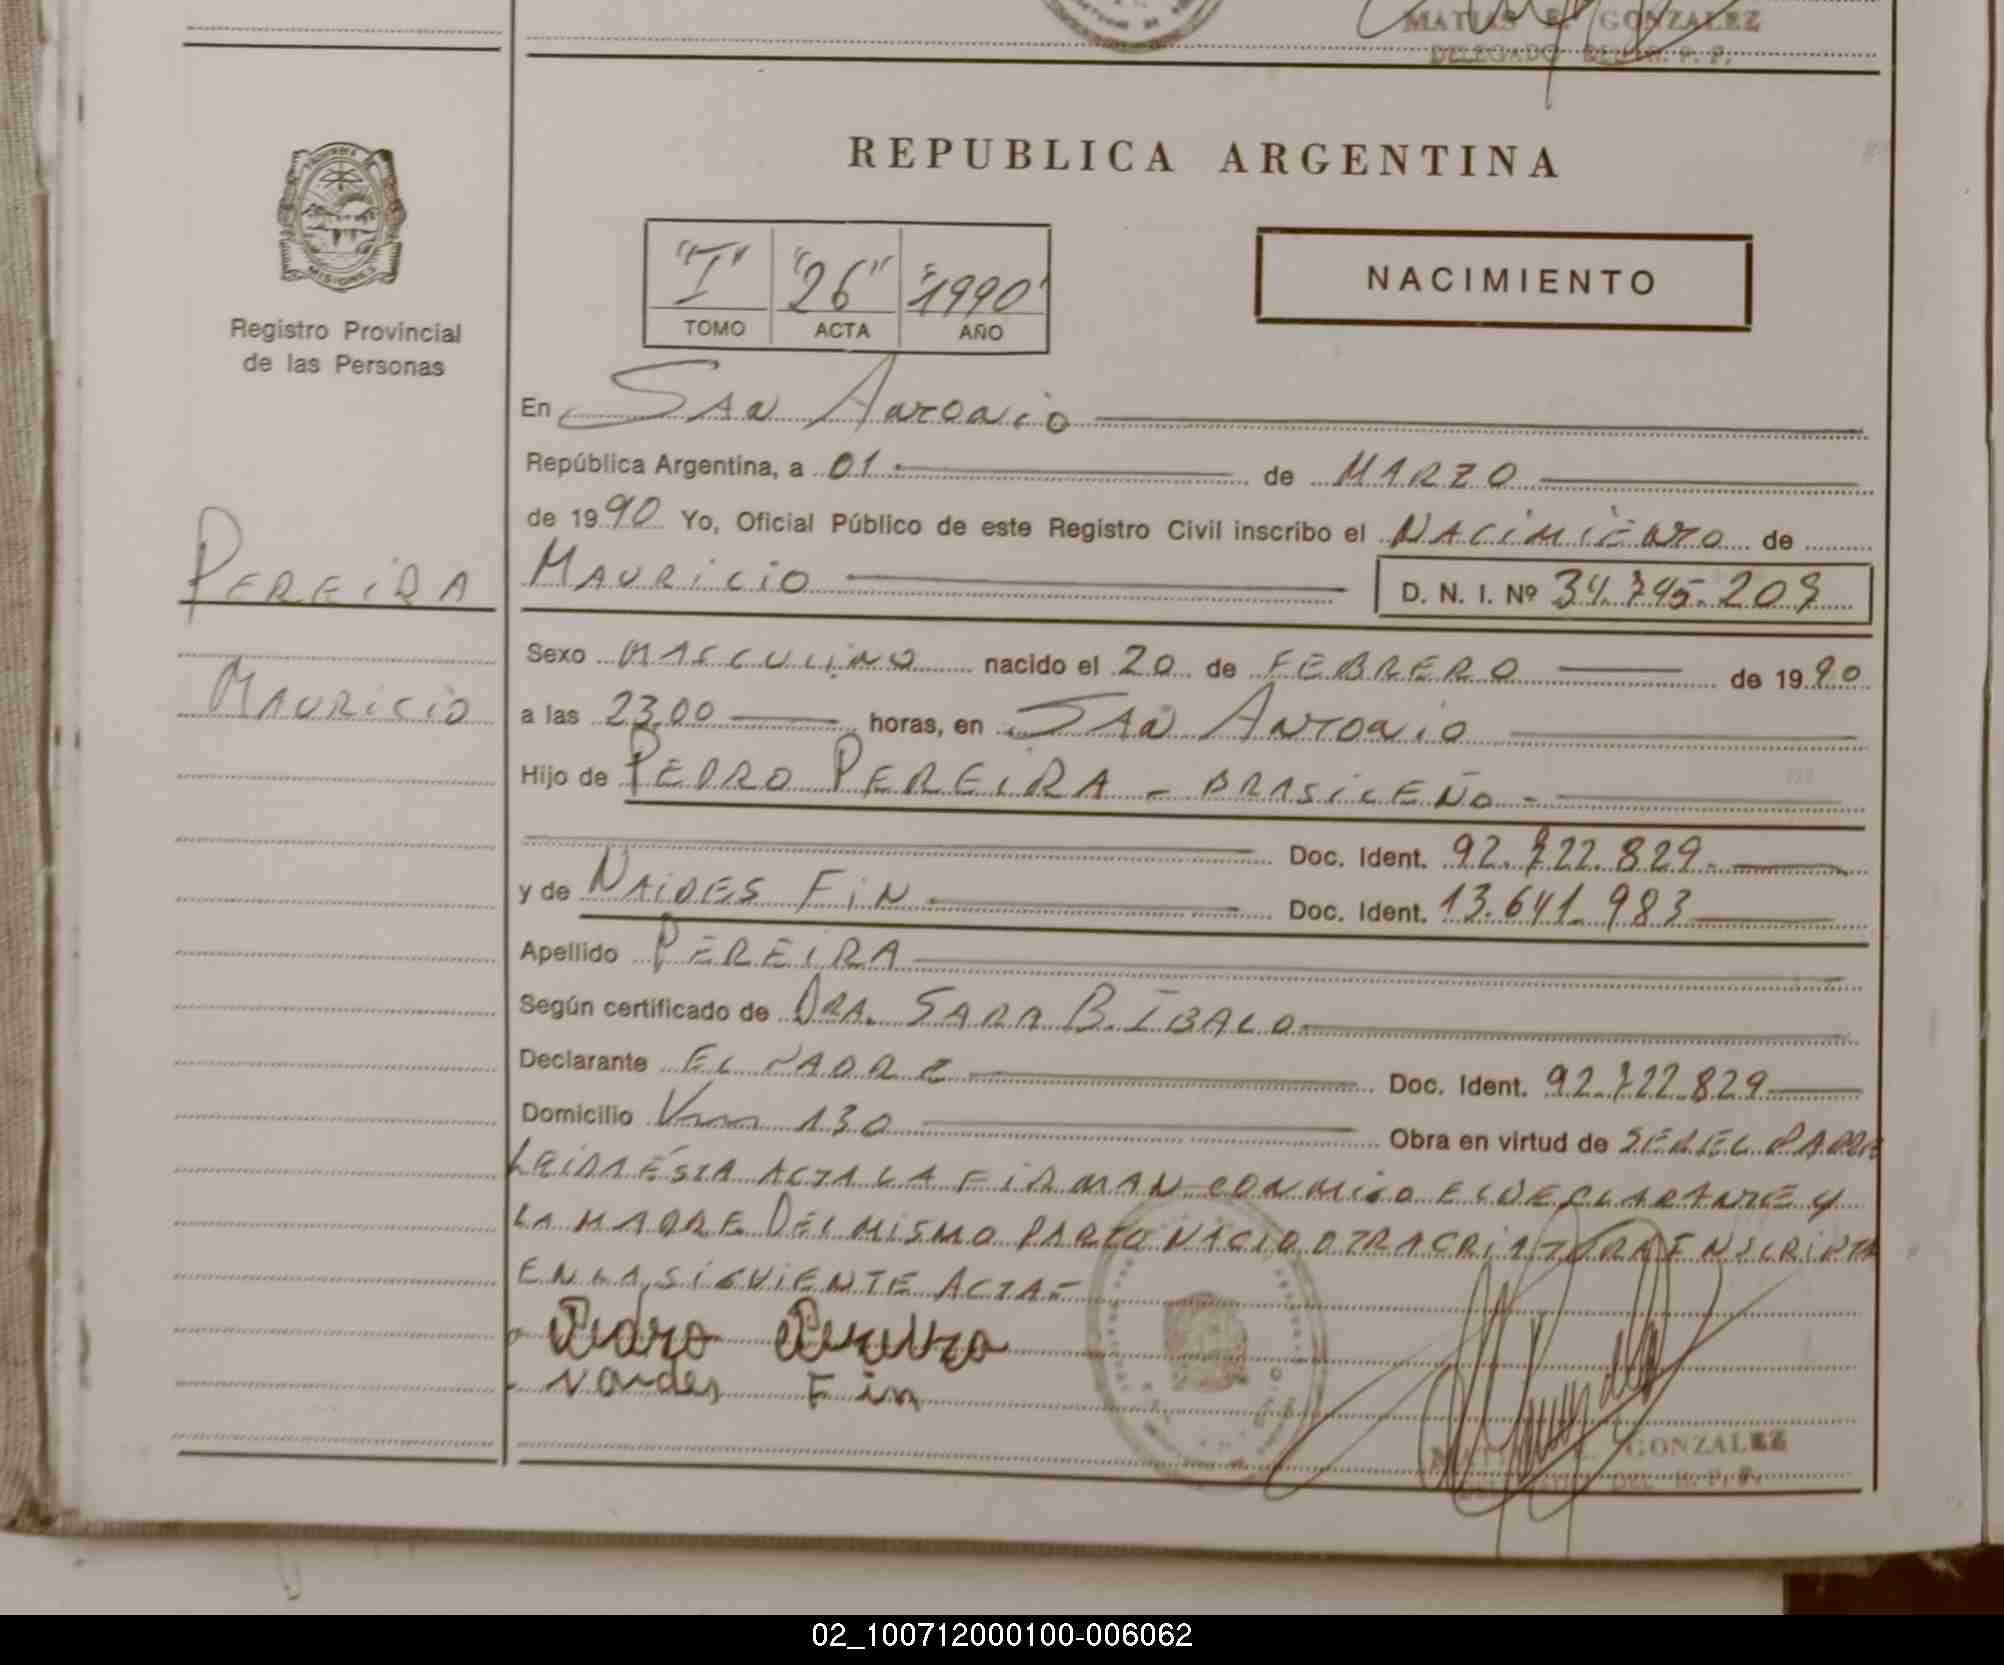 MATIAS E. GONZALEZ
DELEGADO DEL R. P. P.
REPUBLICA ARGENTINA
MISIONES
Registro Provincial
de las Personas
"I" "26" "1990"
TOMO ACTA AÑO
NACIMIENTO
En SAN ANTONIO
República Argentina, a 01 de MARZO
de 1990 Yo, Oficial Público de este Registro Civil inscribo el NACIMIENTO de
PEREIRA
MAURICIO
MAURICIO D. N. I. Nº 34.795.209
Sexo MASCULINO nacido el 20 de FEBRERO de 1990
a las 23,00 horas, en SAN ANTONIO
Hijo de PEDRO PEREIRA - BRASILEÑO -
Doc. Ident. 92.722.829.
y de NAIDES FIN Doc. Ident. 13.641.983
Apellido PEREIRA
Según certificado de DRA. SARA B. IBALO
Declarante EL PADRE Doc. Ident. 92.722.829
Domicilio Km 130 Obra en virtud de SER EL PADRE
LEIDA ÉSTA ACTA LA FIRMAN CONMIGO EL DECLARANTE Y
LA MADRE DEL MISMO PARTO NACIO OTRA CRIATURA INSCRIPTA
EN LA SIGUIENTE ACTA-
Pedro Pereira
Naides Fin
MATIAS E. GONZALEZ
DELEGADO DEL R. P. P.
02_100712000100-006062